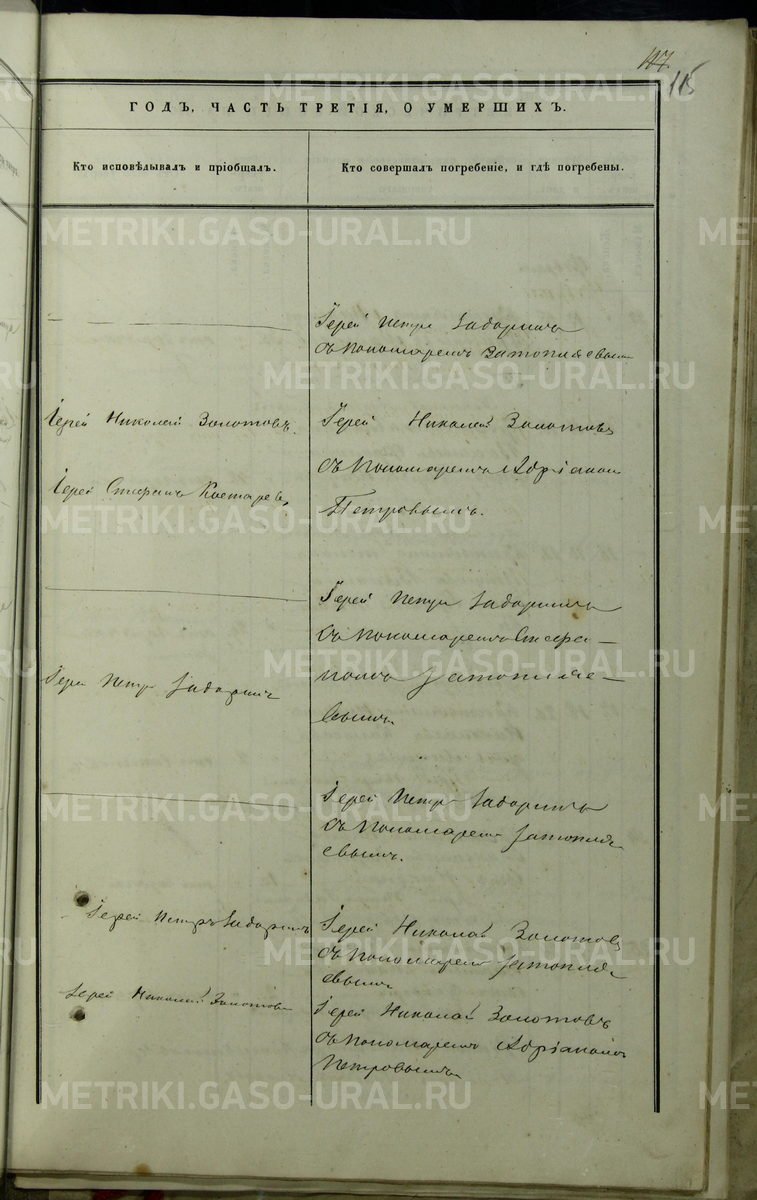 117
115
ГОДЪ, ЧАСТЬ ТРЕТІЯ, О УМЕРШИХЪ.
Кто исповѣдывалъ и пріобщалъ.
Кто совершалъ погребеніе, и гдѣ погребены.
Іерей Петръ
съ пономаремъ Затопляевымъ
Іерей Николай Золотовъ.
Іерей Николай Золотовъ
съ пономаремъ Адріаномъ
Петровымъ.
Іерей Стефанъ Костаревъ,
Іерей Петръ
съ пономаремъ Стефа-
номъ Затопляе-
вымъ.
Іерей Петръ
Іерей Петръ
съ пономаремъ Затопля
евымъ.
Іерей Петръ
Іерей Николай Золотовъ
съ пономаремъ Затопля
евымъ
Іерей Николай Золотовъ
Іерей Николай Золотовъ
съ пономаремъ Адріаномъ
Петровымъ
METRIKI.GASO-URAL.RU